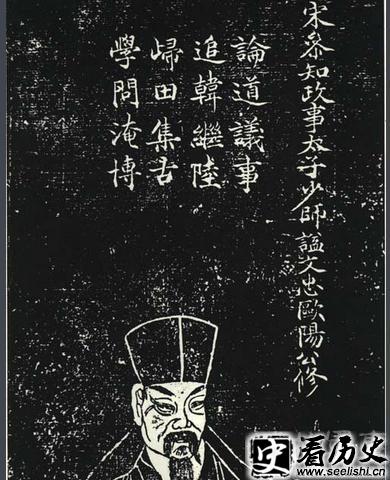 宋叅知政事太子少師謚文忠歐陽公修
論道議事
追韓繼陸
㱕田集古
學問淹博
史 看历史
www.seelishi.cn